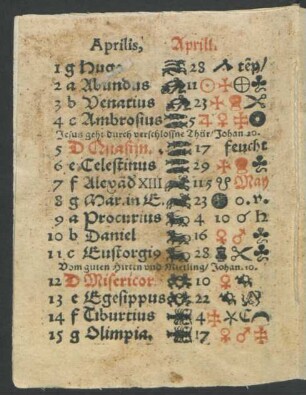 Aprilis, Aprill.
1 g Hugo 28 tēp/
2 a Abundus 11
3 b Venatius 23
4 c Ambrosius 5
Jesus geht durch verschlossne Thür/ Johan. 20.
5 D Quasim. 17 feucht
6 e Celestinus 29
7 f Alexād XIII 11 5 May
8 g Mar. in E. 23 o. v.
9 a Procurius 4 10 ☌ ♄
10 b Daniel 16 ♀ ♂
11 c Eustorgio 28
Vom guten Hirten und Mietling/ Johan. 10.
12 D Misericor. 10 ♀
13 e Egesippus 22
14 f Tiburtius 4
15 g Olimpia. 17 ♀ ♂